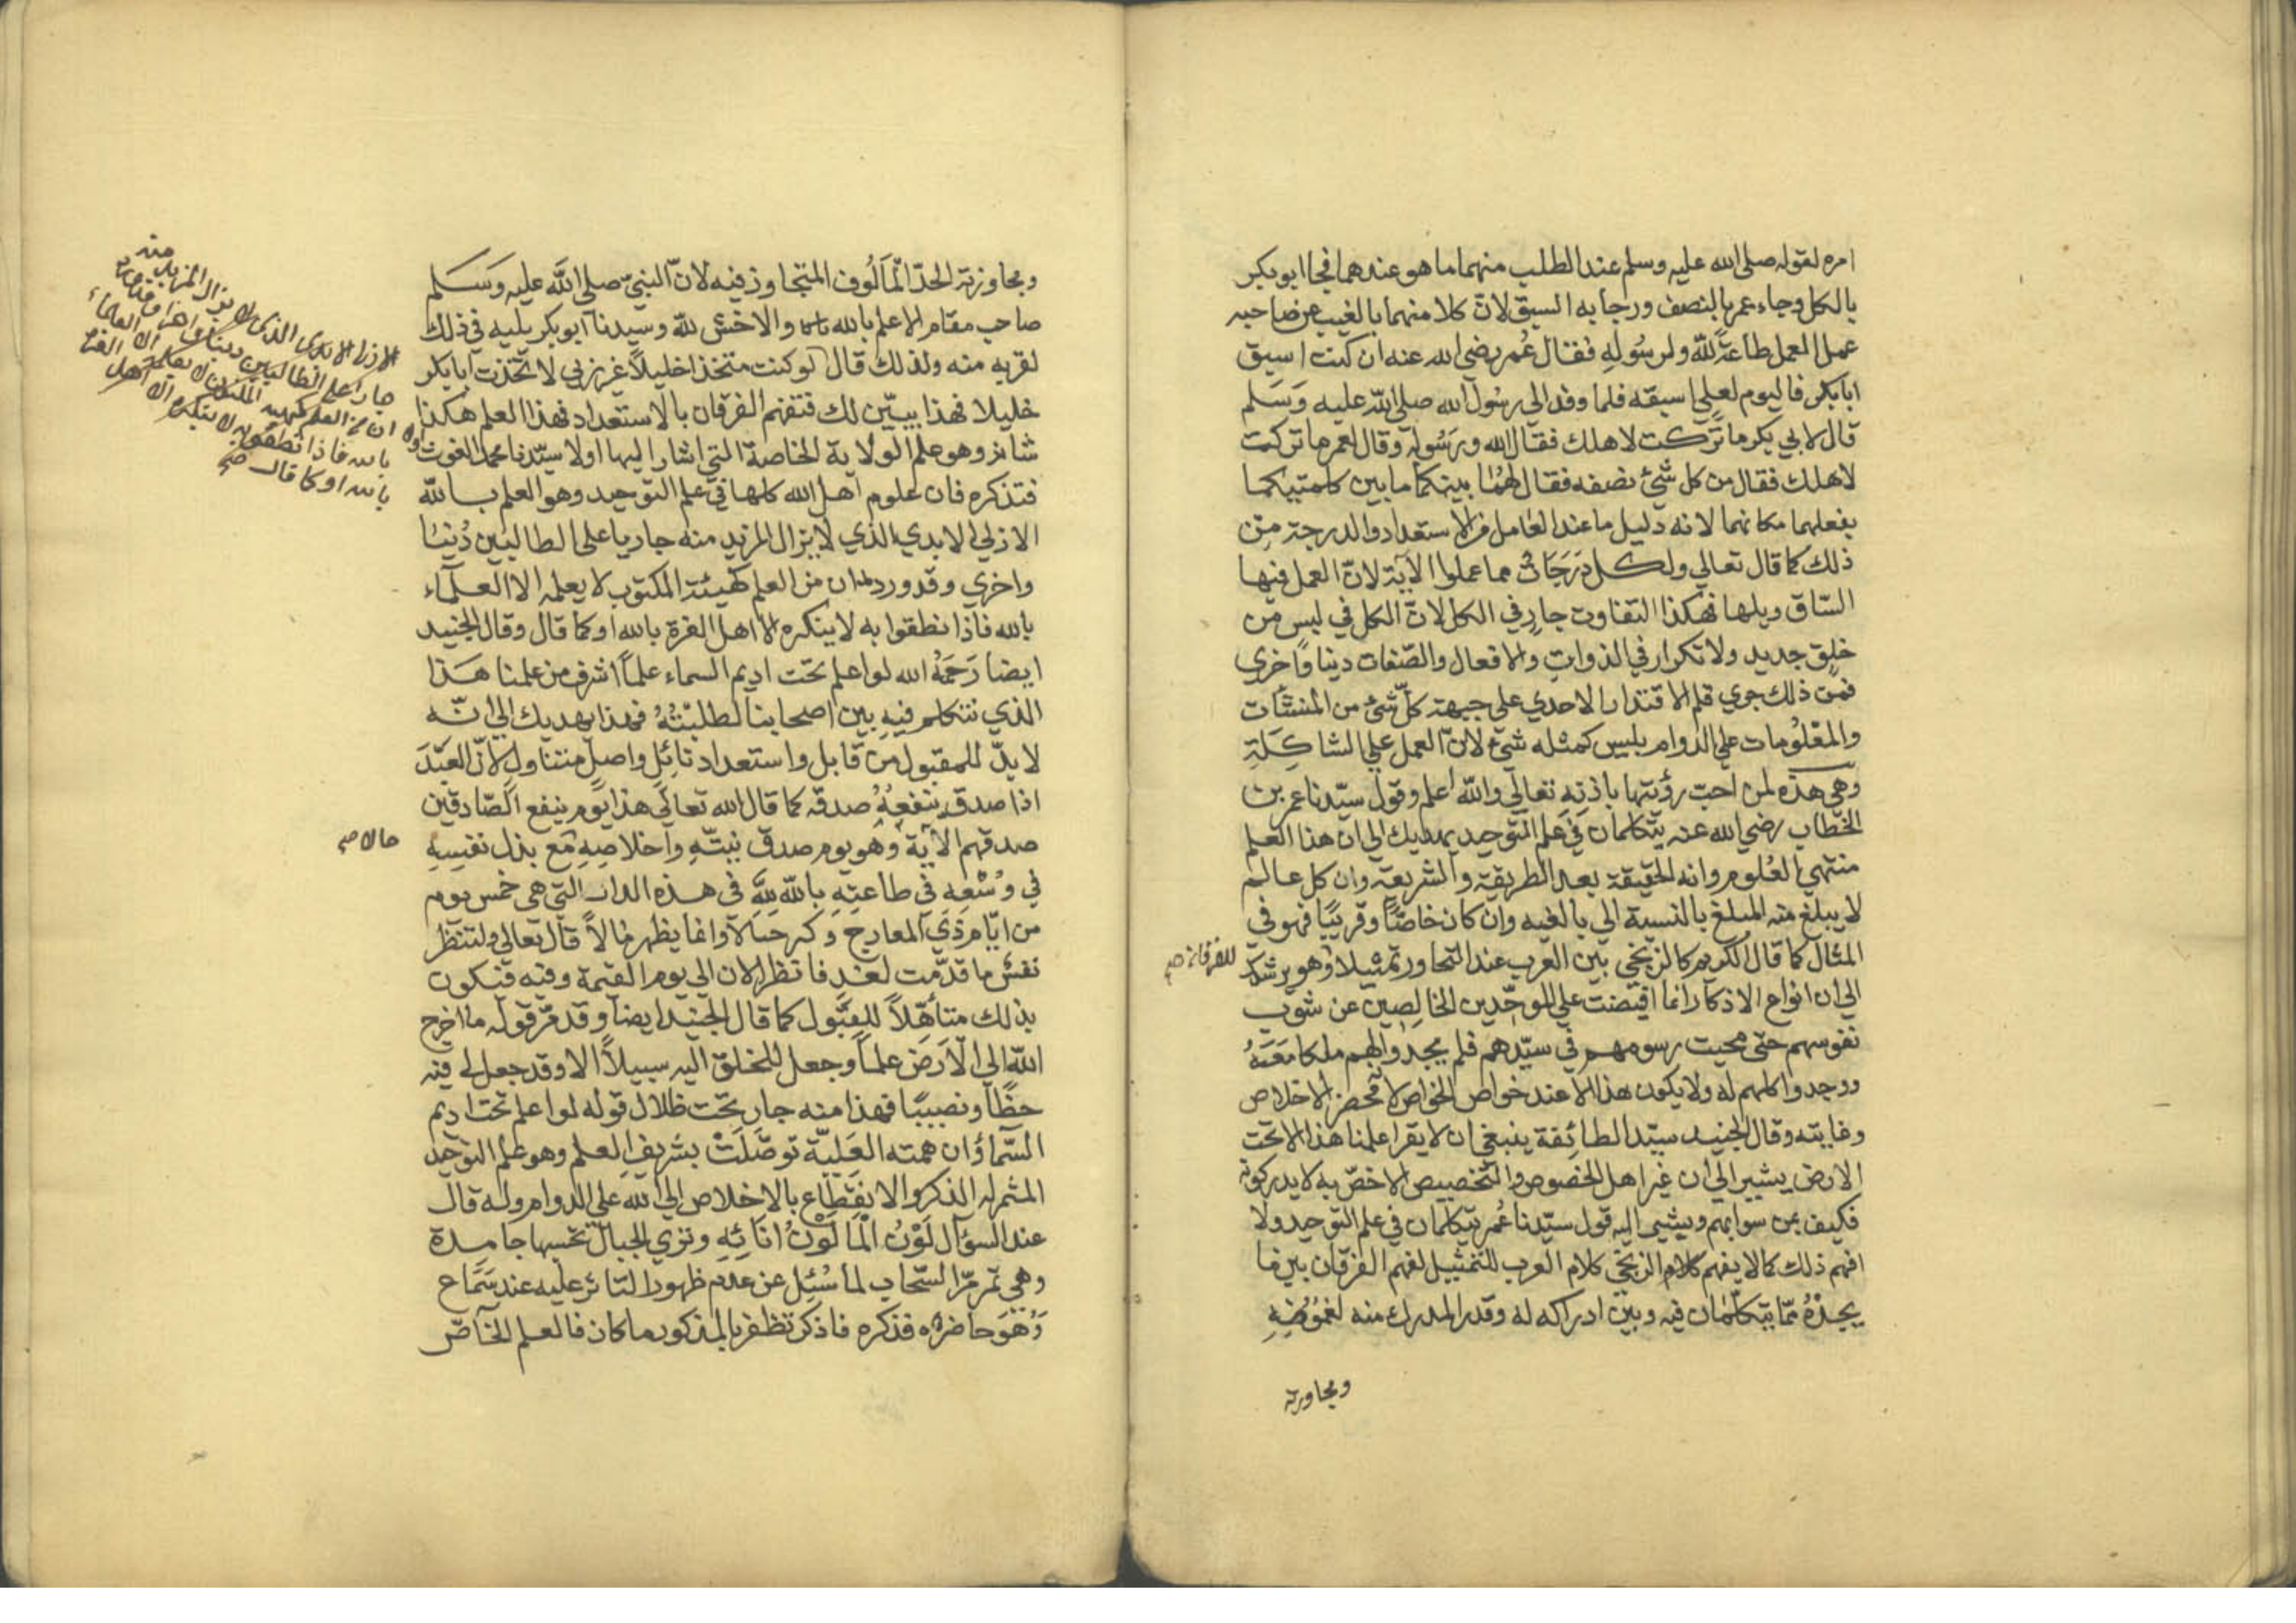 امره لقوله صلى الله عليه وسلم عند الطلب منهما ما هو عندهما فجا ابو بكر
بالكل وجاء عمر بالنصف ورجا به السبق لان كلا منهما بالغيب عن صاحبه
عمل العمل طاعة لله ولرسوله فقال عمر رضي الله عنه ان كنت اسبق
ابابكر فاليوم لعلي اسبقه فلما وفد الي رسول الله صلى الله عليه وسلم
قال لابي بكر ما تركت لاهلك فقال الله ورسوله وقال لعمر ما تركت
لاهلك فقال من كل شئ نصفه فقال لهما بينكما ما بين كلمتيكما
بفعلهما مكانهما لانه دليل ما عند العامل من الاستعداد والدرجة من
ذلك كما قال تعالي ولكل درجات مما عملوا الآية لان العمل فيها
الساق ويلها فهكذا التفاوت جار في الكل لان الكل في لبس من
خلق جديد ولا تكرار في الذوات والافعال والصفات دينا واخري
فمن ذلك جري قلم الاقتدار الاحدي علي جبهة كل شئ من المنشئات
والمعلومات علي الدوام بليس كمثله شئ لان العمل علي الشاكلة
وهي هذه لمن احب رؤيتها باذنه تعالي والله اعلم وقول سيدنا عمر بن
الخطاب رضي الله عنه يتكلمان في علم التوحيد يهديك الي ان هذا العلم
منتهي العلوم وانه الحقيقة بعد الطريقة والشريعة وان كل عالم
لا يبلغ منه المبلغ بالنسبة الي بالغيه وان كان خاصا وقريبا فهو في
المثال كما قال الكريم كالزنجي بين العرب عند التحاور تمثيلا وهو يرشدك
للفرقان صح
الي ان انواع الاذكار انما افيضت علي الموحدين الخالصين عن شوب
نفوسهم حتى محيت رسومهم في سيدهم فلم يجدوا لهم ملكا معه
ووجدوا كلهم له ولا يكون هذا الا عند خواص الخواص لا محض الاخلاص
وغايته وقال الجنيد سيد الطائفة ينبغي ان لا يقرا علمنا هذا الا تحت
الارض يشير الي ان غير اهل الخصوص والتخصيص الاخص به لا يدركونه
فكيف بمن سواهم ويشير اليه قول سيدنا عمر يتكلمان في علم التوحيد ولا
افهم ذلك كما لا يفهم كلام الزنجي كلام العرب للتمثيل لفهم الفرقان بين ما
يجده مما يتكلمان فيه وبين ادراكه له وقدر المدرك منه لغموضه
ومجاوزته
ومجاوزته الحد المألوف المتجاوز فيه لان النبي صلى الله عليه وسلم
صاحب مقام الاعلم بالله والاخشى لله وسيدنا ابو بكر يليه في ذلك
لقربه منه ولذلك قال لو كنت متخذا خليلا غير ربي لاتخذت ابابكر
خليلا فهذا يبين لك فتفهم الفرقان بالاستعداد فهذا العلم هكذا
شانه وهو علم الولاية الخاصة التي اشار اليها اولا سيدنا محمد الغوث
فتذكره فان علوم اهل الله كلها في علم التوحيد وهو العلم بالله
الازلي الابدي الذي لا يزال المزيد منه جاريا على الطالبين دنيا
واخري وقد ورد ان من العلم كهيئة المكنون لا يعلمه الا العلماء
بالله فاذا نطقوا به لا ينكره الا اهل الغرة بالله او كما قال وقال الجنيد
ايضا رحمه الله لو اعلم تحت اديم السماء علما اشرف من علمنا هذا
الذي نتكلم فيه بين اصحابنا لطلبته فهذا يهديك الي انه
لا بد للمقبول من قابل واستعداد نائل واصل متناول لان العبد
اذا صدق ينفعه صدقه كما قال الله تعالى هذا يوم ينفع الصادقين
صدقهم الآية وهو يوم صدق نيته واخلاصه مع بذل نفسه
حالا صح
في وسعه في طاعته بالله لله في هذه الدار التي هي خمس يوم
من ايام ذي المعارج وكرحسلا وانما يظهر مالا قال تعالى ولتنظر
نفس ما قدمت لغد فانظر الان الي يوم القيمة وفيه فتكون
بذلك متأهلا للقبول كما قال الجنيد ايضا وقد مر قوله ما اخرج
الله الي الارض علما وجعل للخلق اليه سبيلا الا وقد جعل لي فيه
حظا ونصيبا فهذا منه جار تحت ظلال قوله لو اعلم تحت اديم
السماء وان همته العلية توصلت بشريف العلم وهو علم التوحيد
المثمر له الذكر والانقطاع بالاخلاص الي الله علي الدوام وله قال
عند السؤال لون الما لون انائه وتري الجبال تحسبها جامدة
وهي تمر مر السحاب لما سئل عن عدم ظهور التاثر عليه عند سماع
وهو حاضره فذكره فاذكر تظفر بالمذكور ما كان فالعلم الخاص
الازلي الابدي الذي لا يزال المزيد منه
جار على الطالبين
ان من العلم كهيئة المكنون لا يعلمه الا العلماء
بالله فاذا نطقوا به لا ينكره الا اهل الغرة
بالله او كما قال صح